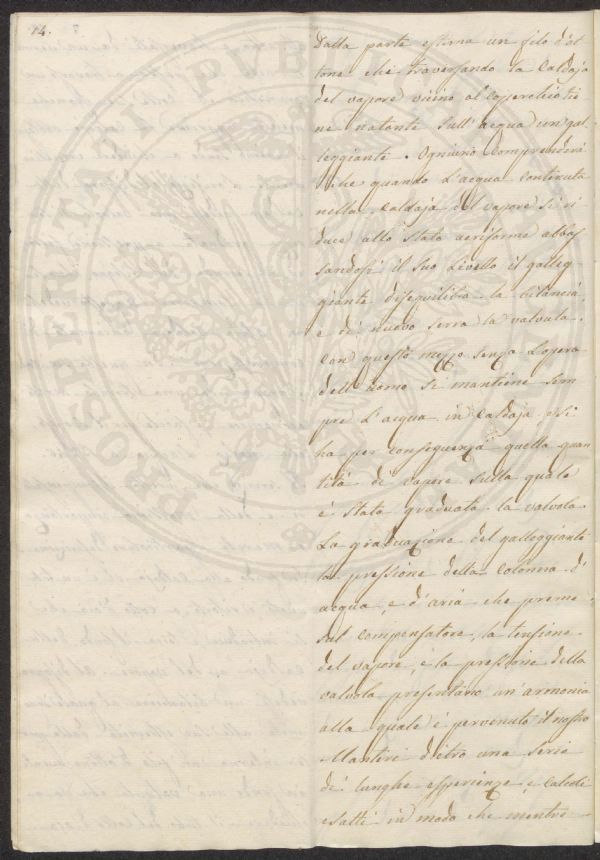 14.
Dalla parte esterna un filo d'ot
tone che traversando la Caldaja
del vapore vicino al Coperchio tie
ne natante sull'acqua un gal
leggiante. Ogniuno comprenderà
che quando l'acqua contenuta
nella Caldaja del vapore si ri
duce allo Stato aeriforme abbas
sandosi il suo livello il galleg
giante disequilibra la bilancia
e di nuovo serra la valvula.
Con questo mezzo senza l'opera
dell'uomo si mantiene sem
pre l'acqua in Caldaja, e si
ha per conseguenza quella quan
tità di vapore sulla quale
è stata graduata la valvola.
La graduazione del galleggiante
la pressione della Colonna d'
acqua, e d'aria che preme
sul compensatore, la tensione
del vapore, e la pressione della
valvola presentano un'armonia
alla quale è pervenuto il nostro
Mantiri dietro una seria
di lunghe esperienze, e calcoli
esatti in modo che mentre
PROSPERITATI PUBLICAE